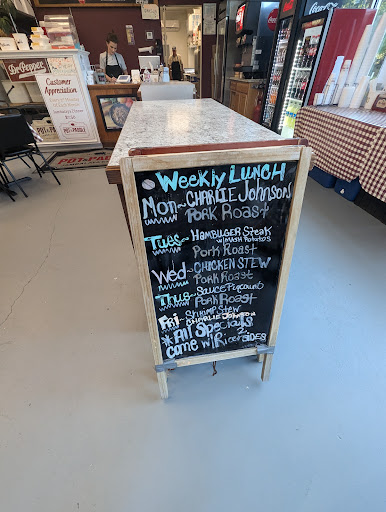 Dr Pepper
Customer
Appreciation
Coca-Cola
WEEKLY LUNCH
Mon~CHARLIE JOHNSON
PORK ROAST
Tues~HAMBUGER STEAK
w/MUSH POTATOES
PORK ROAST
Wed~CHICKEN STEW
PORK ROAST
Thur~SAUCE PIQUANTE
PORK ROAST
Fri~SHRIMP STEW
CHARLIE JOHNSON
*All Specials
Come w/Rice & 2 SIDES